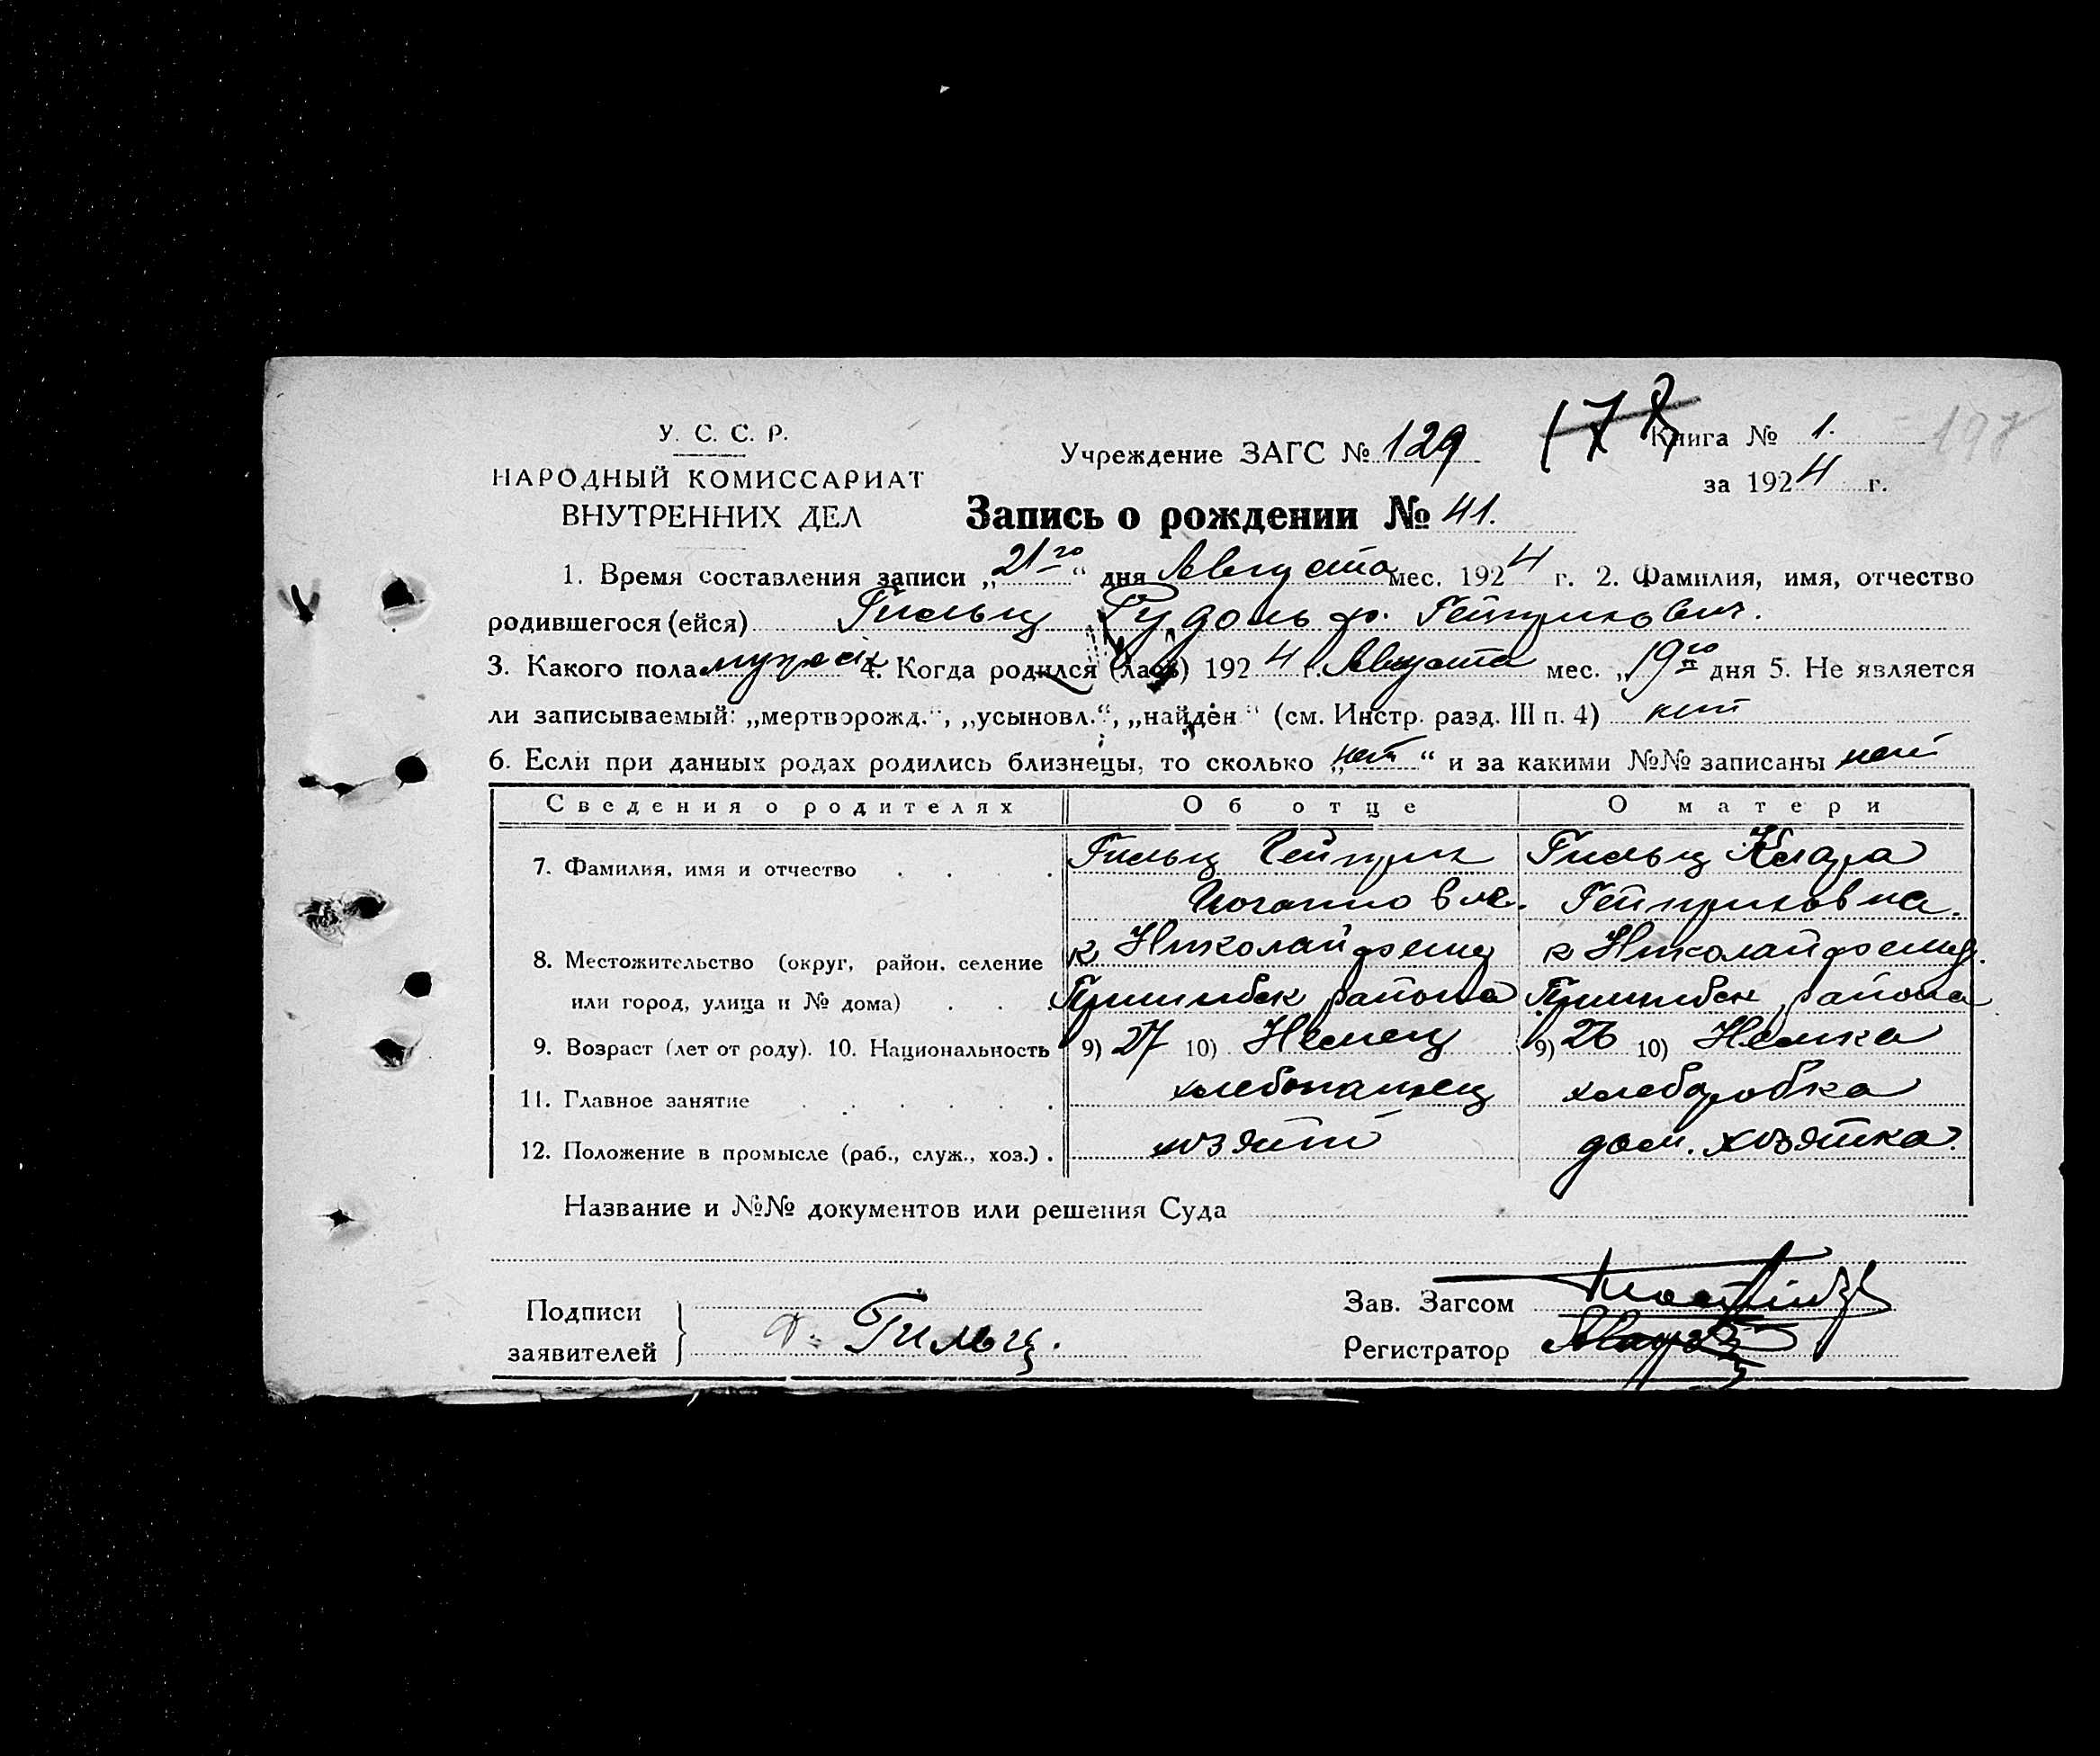 У. С. С. Р.
НАРОДНЫЙ КОМИССАРИАТ
ВНУТРЕННИХ ДЕЛ
Учреждение ЗАГС № 129
178
Книга № 1.
197
за 1924 г.
Запись о рождении № 41.
1. Время составления записи „21го“ дня Августа мес. 1924 г. 2. Фамилия, имя, отчество
родившегося (ейся) Гильц Рудольф. Гейнрихович.
3. Какого пола мужск 4. Когда родился (лась) 1924 г. Августа мес. „19го дня 5. Не является
ли записываемый: „мертворожд.“, „усыновл.“, „найден“ (см. Инстр. разд. III п. 4) нет
6. Если при данных родах родились близнецы, то сколько „нет“ и за какими №№ записаны нет
Сведения о родителях Об отце О матери
7. Фамилия, имя и отчество . . . . Гильц Гейнрих Гильц Клара
Иоганнович. Гейнриховна.
8. Местожительство (округ, район, селение к Николайфельд к Николайфельд.
или город, улица и № дома) . . . Пришибск района Пришибск района
9. Возраст (лет от роду). 10. Национальность 9) 27 10) Немец 9) 26 10) Немка
11. Главное занятие . . . . . . хлебопашец хлеборобка
12. Положение в промысле (раб., служ., хоз.) . хозяин дом. хозяйка.
Название и №№ документов или решения Суда
Подписи
заявителей
Г. Гильц.
Зав. Загсом
Регистратор